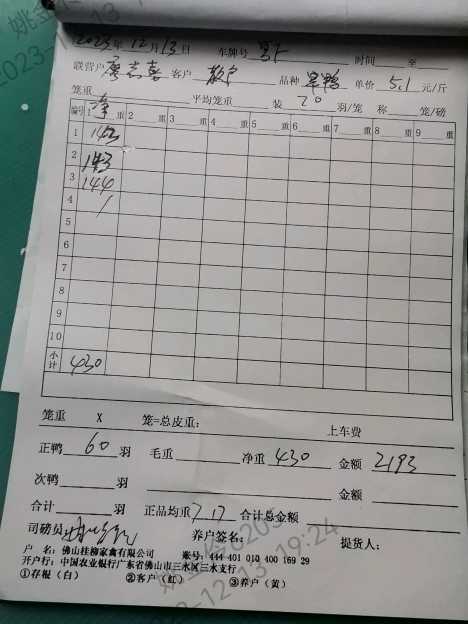 2023年12月13日 车牌号 时间 至
联营户 客户 散户 品种 单价 5.1 元/斤
笼重 平均笼重 装 20 羽/笼 称 笼/磅
编号 1 净重 2 重 3 重 4 重 5 重 6 重 7 重 8 重 9 重
1 143
2 143
3 144
4 /
5
6
7
8
9
10
小计 430
笼重 X 笼=总皮重: 上车费
正鸭 60 羽 毛重 净重 430 金额 2193
次鸭 羽 金额
合计 羽 正品均重 7.17 合计总金额
司磅员 养户签名: 提货人:
户 名: 佛山挂柳家禽有限公司 账号: 444 401 010 400 169 29
开户行: 中国农业银行广东省佛山市三水区三水支行
①存根(白) ②客户(红) ③养户(黄)